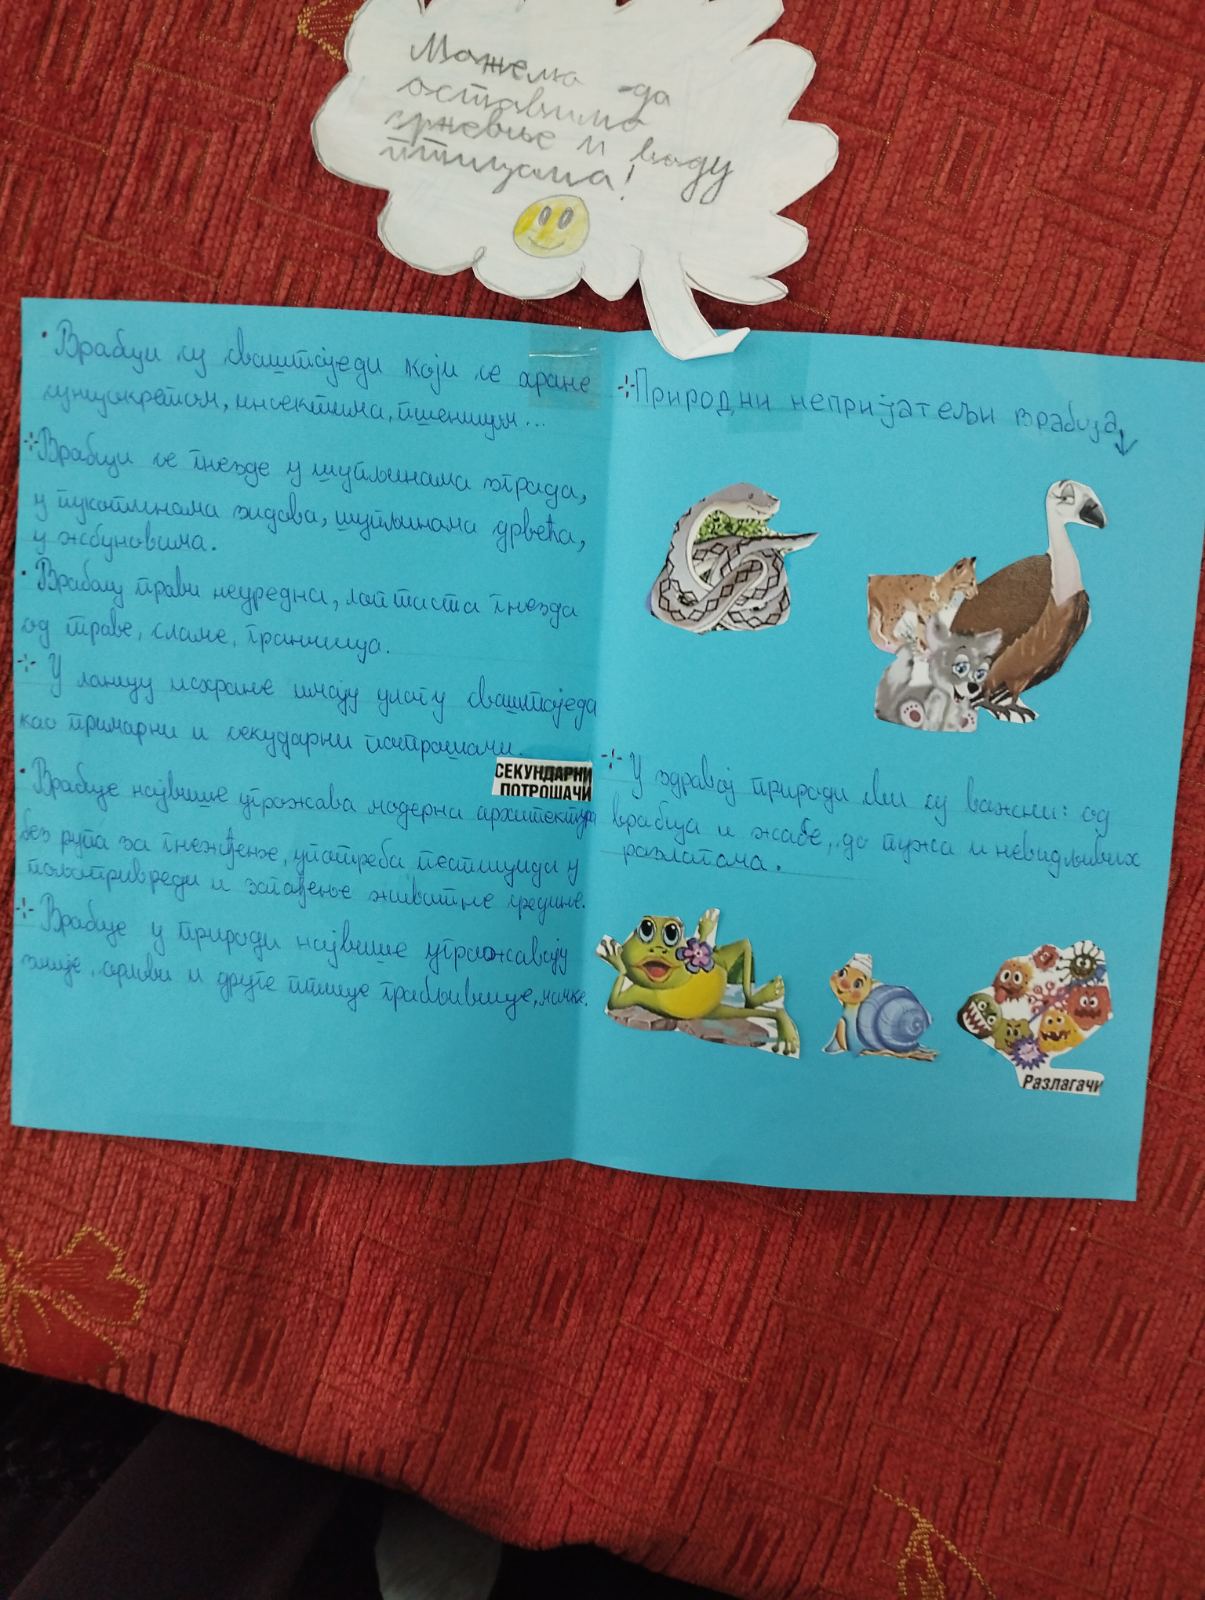 Можемо да
оставимо
зрневље и воду
птицама!
· Врабци су сваштоједи који се хране
сунцокретом, инсектима, пшеницом...
Врабци се гнезде у шупљинама зграда,
у пукотинама зидова, шупљинама дрвећа,
у жбуновима.
· Врабац прави неуредна, лоптаста гнезда
од траве, сламе, гранчица.
У ланцу исхране имају улогу сваштоједа
као примарни и секударни потрошачи.
СЕКУНДАРНИ
ПОТРОШАЧИ
· Врабце највише угрожава модерна архитектура
без рупа за гнежђење, употреба пестицида у
пољопривреди и загађење животне средине.
Врабце у природи највише угрожавају
змије, орлови и друге птице грабљивице, мачке.
Природни непријатељи врабаја
У здравој природи сви су важни: од
врабца и жабе, до пужа и невидљивих
разлагача.
Разлагачи